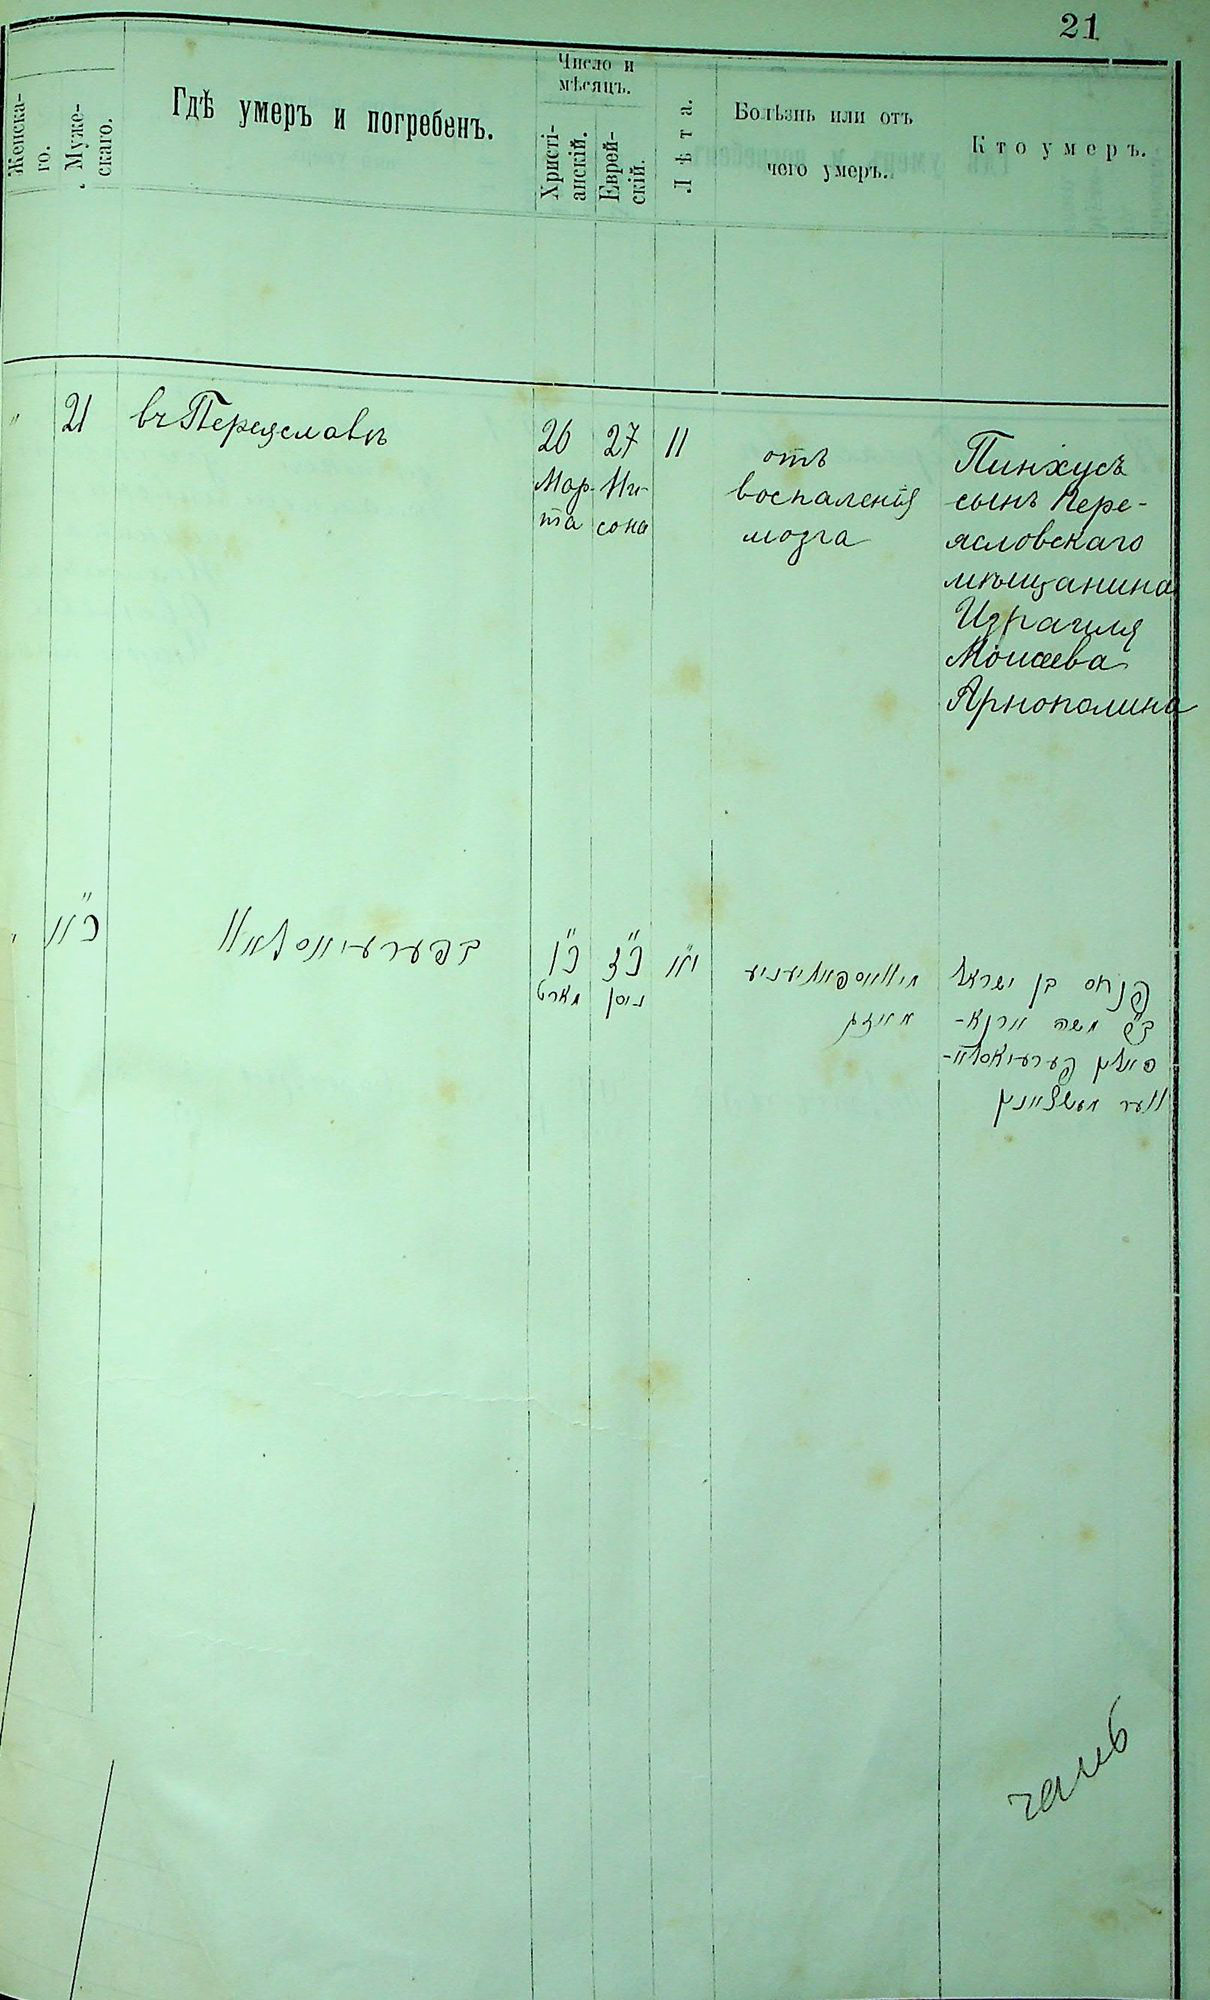 21
Женска-
го.
Муже-
скаго.
Гдѣ умеръ и погребенъ.
Число и
мѣсяцъ.
Христі-
анскій.
Еврей-
скій.
Лѣта.
Болѣзнь или отъ
чего умеръ.
Кто умеръ.
"
21
въ Переяславѣ
26
Мар-
та
27
Ни-
сана
11
отъ
воспаленія
мозга
Пинхусъ
сынъ Пере-
яславскаго
мѣщанина
Израиля
Моисеева
Арнополина
כ"א
כ"ו
מארט
כ"ז
ניסן
י"א
פנחס בן ישראל
משה